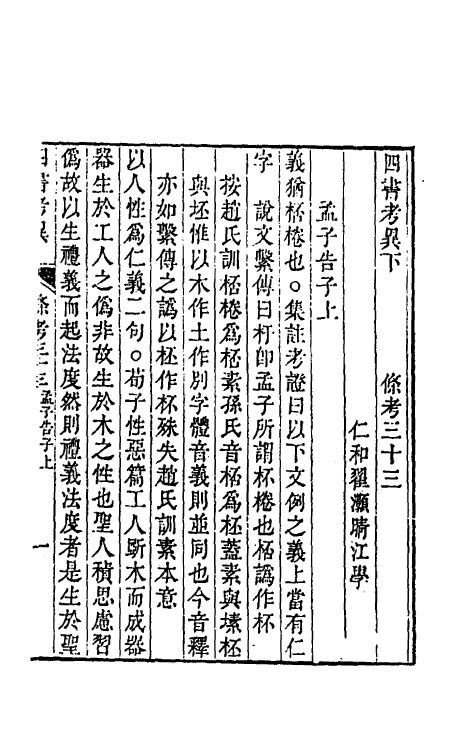 四書考異下　條考三十三
仁和翟灝晴江學
孟子告子上
義猶桮棬也○集註考證曰以下文例之義上當有仁
字　說文繫傳曰杅卽孟子所謂杯棬也桮譌作杯
按趙氏訓桮棬爲桮素孫氏音桮爲柸蓋素與塐柸
與坯惟以木作土作別字體音義則並同也今音釋
亦如繫傳之譌以柸作杯殊失趙氏訓素本意
以人性爲仁義二句○荀子性惡篇工人斲木而成器
器生於工人之僞非故生於木之性也聖人積思慮習
僞故以生禮義而起法度然則禮義法度者是生於聖
四書考異　條考三十三　孟子告子上　一